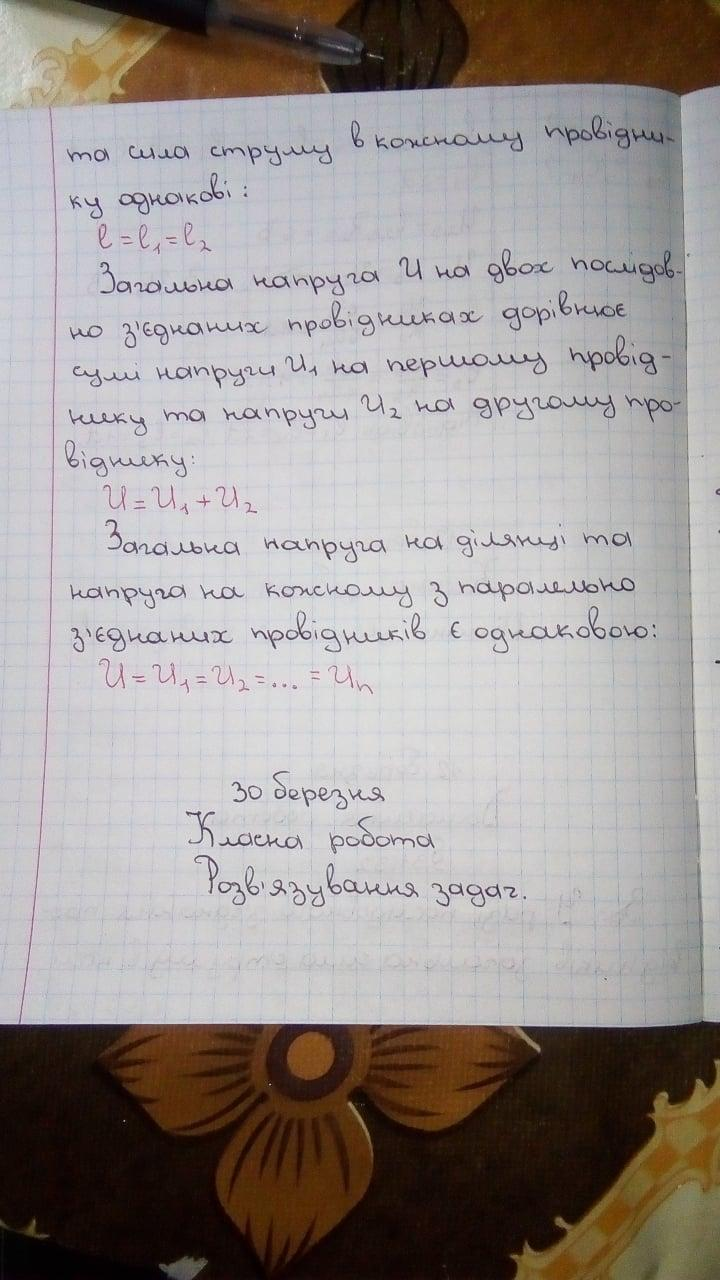 та сила струму в кожному провідни-
ку однакові:
l = l₁ = l₂
Загальна напруга U на двох послідов-
но з'єднаних провідниках дорівнює
сумі напруги U₁ на першому провід-
нику та напруги U₂ на другому про-
віднику:
U = U₁ + U₂
Загальна напруга на ділянці та
напруга на кожному з паралельно
з'єднаних провідників є однаковою:
U = U₁ = U₂ = ... = Un
30 березня
Класна робота
Розв'язування задач.